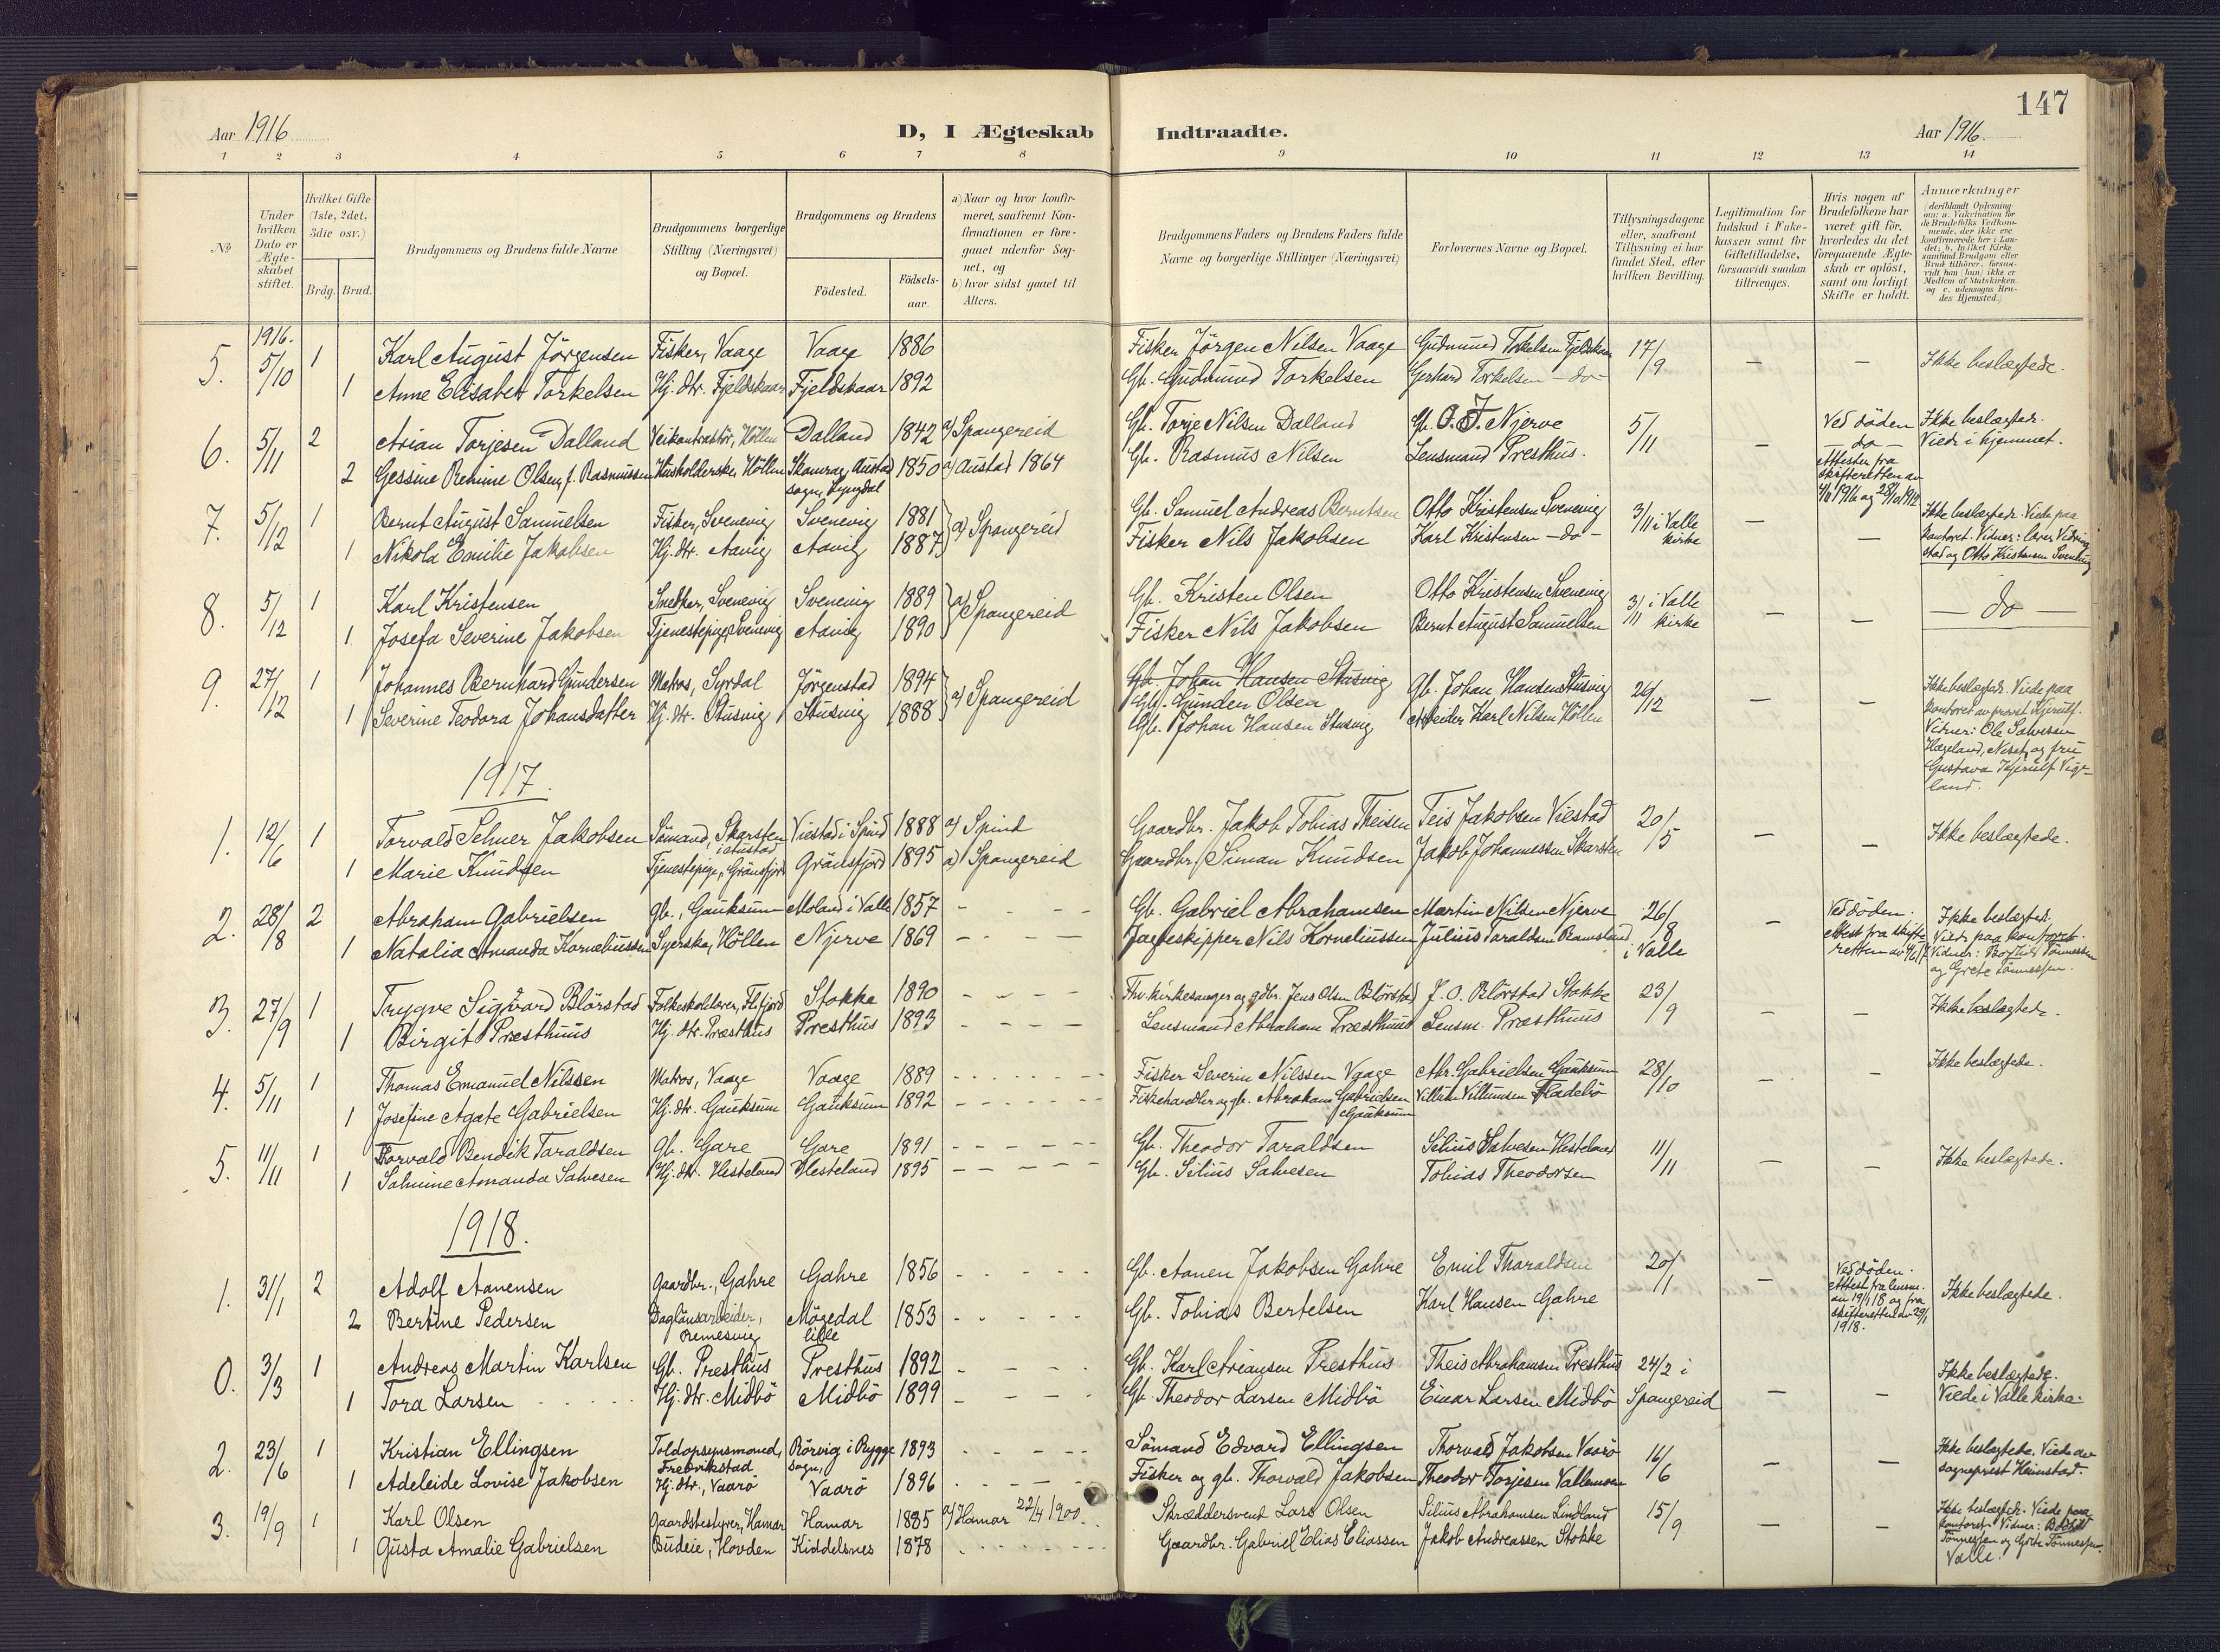 147
Aar 1916
D, I Ægteskab Indtraadte.
Aar 1916.
1 2 3 4 5 6 7 8 9 10 11 12 13 14
№
Under hvilken Dato er Ægteskabet stiftet.
Hvilket Gifte (1ste, 2det, 3die osv.)
Brdg. Brud.
Brudgommens og Brudens fulde Navne
Brudgommens borgerlige Stilling (Næringsvei) og Bopæl.
Brudgommens og Brudens
Födested.
Födselsaar.
a) Naar og hvor konfirmeret, saafremt Konfirmationen er foregaaet udenfor Sognet, og
b) hvor sidst gaaet til Alters.
Brudgommens Faders og Brudens Faders fulde Navne og borgerlige Stillinger (Næringsvei)
Forlovernes Navne og Bopæl.
Tillysningsdagene eller, saafremt Tillysning ei har fundet Sted, efter hvilken Bevilling.
Legitimation for Indskud i Enkekassen samt for Giftetilladelse, forsaavidt saadan tiltrænges.
Hvis nogen af Brudefolkene har været gift för, hvorledes da det foregaaende Ægteskab er oplöst, samt om lovligt Skifte er holdt.
Anmærkninger (deriblandt Oplysning om: a. Vakcination for de Brudefolks Vedkommende, der ikke ere konfirmerede her i Landet; b. hvilket Kirkesamfund Brudgom eller Brud tilhörer, forsaavidt han (hun) ikke er Medlem af Statskirken, og c. udensogns Brudes Hjemsted.)
1916.
5. 5/10 1 Karl August Jörgensen Fisker, Vaage Vaage 1886 Fisker Jörgen Nilsen Vaage Gudmund Torkelsen Fjeldskaar 17/9 — — Ikke beslægtede.
1 Anne Elisabet Torkelsen Hj. dtr. Fjeldskaar Fjeldskaar 1892 Gb. Gudmund Torkelsen Gerhard Torkelsen —do—
6. 5/11 2 Arian Torjesen Dalland Höllen Dalland 1842 a) Spangereid Gb. Torje Nilsen Dalland Gb. O. T. Njerve 5/11 — Ved döden Ikke beslægtede.
2 Gessine Rasmussen Husholderske, Höllen Austad sogn, Lyngdal 1850 a) Austad 1864 Gb. Rasmus Nilsen Lensmand Presthus. —do— Viede i hjemmet.
Attester fra skifteretten av
7. 5/12 1 Bernt August Samuelsen Fisker, Svenevig Svenevig 1881 a) Spangereid Gb. Samuel Andreas Berntsen Otto Kristensen Svenevig 3/11 i Valle kirke — — Ikke beslægtede. Viede paa
1 Nikola Emilie Jakobsen Hj. dtr. Aavig Aavig 1887 Fisker Nils Jakobsen Karl Kristensen —do— kontoret. Vidner: og Otto Kristensen Svenevig
8. 5/12 1 Karl Kristensen Snedker, Svenevig Svenevig 1889 a) Spangereid Gb. Kristen Olsen Otto Kristensen Svenevig 3/11 i Valle kirke — — — do —
1 Josefa Severine Jakobsen Tjenestepige, Svenevig Aavig 1890 Fisker Nils Jakobsen Bernt August Samuelsen
9. 27/12 1 Johannes Bernhard Gundersen Matros, Syrdal Jörgenstad 1894 a) Spangereid Gb. Johan Hansen Stusvig Gb. Johan Hansen Stusvig 26/12 — — Ikke beslægtede. Viede paa
Gb. Gunden Olsen kontoret av provst Kjerulf.
1 Severine Teodora Johansdatter Hj. dtr. Stusvig Stusvig 1888 Gb. Johan Hansen Stusvig Arbeider Karl Nilsen Höllen Vidner: Ole Salvesen
Hageland, og frue
Gustava Kjerulf Vigeland.
1917.
1. 12/6 1 Torvald Selmer Jakobsen Sömand, Skarsten i Austad Viestad i Spind 1888 a) Spind Gaardbr. Jakob Tobias Theisen Teis Jakobsen Viestad 20/5 — — Ikke beslægtede.
1 Marie Knudsen Tjenestepige, Gränsfjord Gränsfjord 1895 a) Spangereid Gaardbr. Simon Knudsen Jakob Johannessen Skarsten
2. 28/8 2 Abraham Gabrielsen gb., Gauksum Moland i Valle 1857 Gb. Gabriel Abrahamsen Martin Nilsen Njerve 26/8 i Valle — Ved döden. Ikke beslægtede.
1 Natalia Amanda Korneliussen Syerske, Höllen Njerve 1869 Jagteskipper Nils Korneliussen Julius Taraldsen Ramsland Attest fra skifteretten av Viede paa kontoret. Vidner: Borghild Tönnessen og Grete Tönnessen.
3. 27/9 1 Trygve Sigvard Blörstad Folkeskolelærer, Stokke 1890 Fhv. kirkesanger og gdbr. Jens Olsen Blörstad J. O. Blörstad Stokke 23/9 — — Ikke beslægtede.
1 Birgit Præsthuus Hj. dtr. Præsthus Presthus 1893 Lensmand Abraham Præsthuus Lensm. Præsthuus
4. 5/11 1 Thomas Emanuel Nilssen Matros, Vaage Vaage 1889 Fisker Severin Nilssen Vaage Abr. Gabrielsen Gauksum 28/10 — — Ikke beslægtede.
1 Josefine Agate Gabrielsen Hj. dtr. Gauksum Gauksum 1892 Fiskehandler og gb. Abraham Gabrielsen Gauksum Villum Villumsen Fladebö
5. 11/11 1 Torvald Bendik Taraldsen gb. Gare Gare 1891 Gb. Theodor Taraldsen Silius Salvesen Hesteland 11/11 — — Ikke beslægtede.
1 Salmine Amanda Salvesen Hj. dtr. Hesteland Hesteland 1895 Gb. Silius Salvesen Tobias Theodorsen
1918.
1. 31/1 2 Adolf Aanensen Gaardbr., Gahre Gahre 1856 Gb. Aanen Jakobsen Gahre Emil Tharaldsen 20/1 — Ved döden. Ikke beslægtede.
2 Bertine Pedersen Daglönsarbeider, Remesvig Mögedal lille 1853 Gb. Tobias Bertelsen Karl Hansen Gahre Attest fra lensm. av 19/1 18 og fra skifteretten av 29/1 1918.
0. 3/3 1 Andreas Martin Karlsen Gb. Presthus Presthus 1892 Gb. Karl Ariansen Presthus Theis Abrahamsen Presthus 24/2 i Spangereid — — Ikke beslægtede.
1 Tora Larsen Hj. dtr. Midbö Midbö 1899 Gb. Theodor Larsen Midbö Einar Larsen Midbö Viede i Valle kirke.
2. 23/6 1 Kristian Ellingsen Toldopsynsmand, Fredrikstad Rörvig i Rygge sogn, 1893 Sömand Edvard Ellingsen Thorvald Jakobsen Vaarö 16/6 — — Ikke beslægtede. Viede av
1 Adeleide Lovise Jakobsen Hj. dtr., Vaarö Vaarö 1896 Fisker og gb. Thorvald Jakobsen Theodor Torjesen Vallemoen sogneprest Heimstad.
3. 19/9 1 Karl Olsen Gaardsbestyrer, Hamar Hamar 1885 a) Hamar 22/4 1900. Skræddersvend Lars Olsen Silius Abrahamsen Lindland 15/9 — — Ikke beslægtede. Viede paa
1 Gusta Amalie Gabrielsen Budeie, Hovden Kiddelsnes 1878 Gaardbr. Gabriel Elias Eliassen Jakob Andreassen Stokke kontoret. Vidner: Tönnessen og Grete Tönnessen Valle.